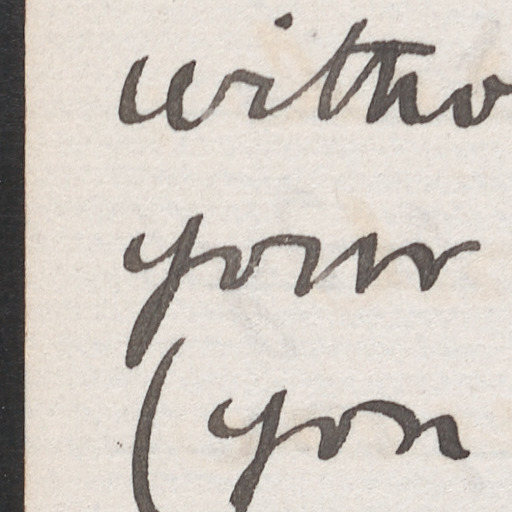 witho
your
(you